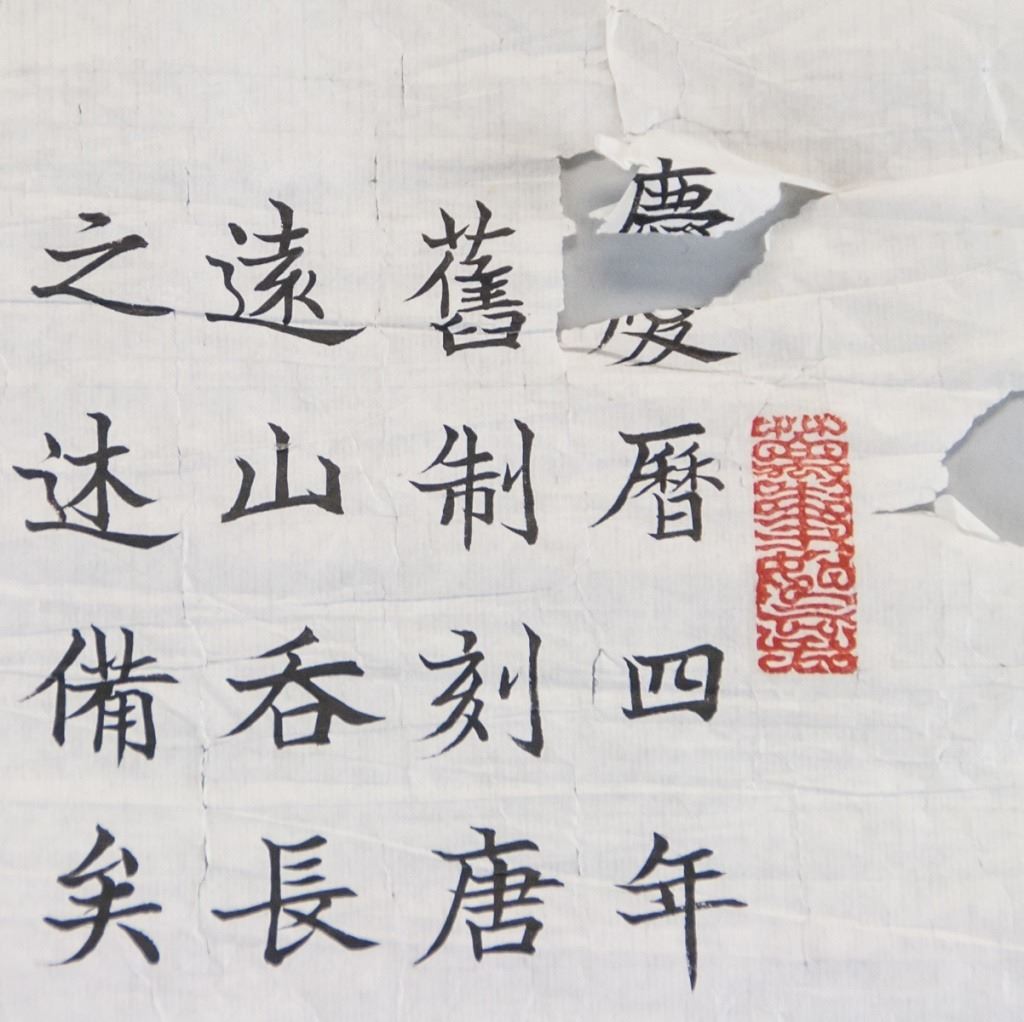 慶曆四年
舊制刻唐
遠山吞長
之述備矣